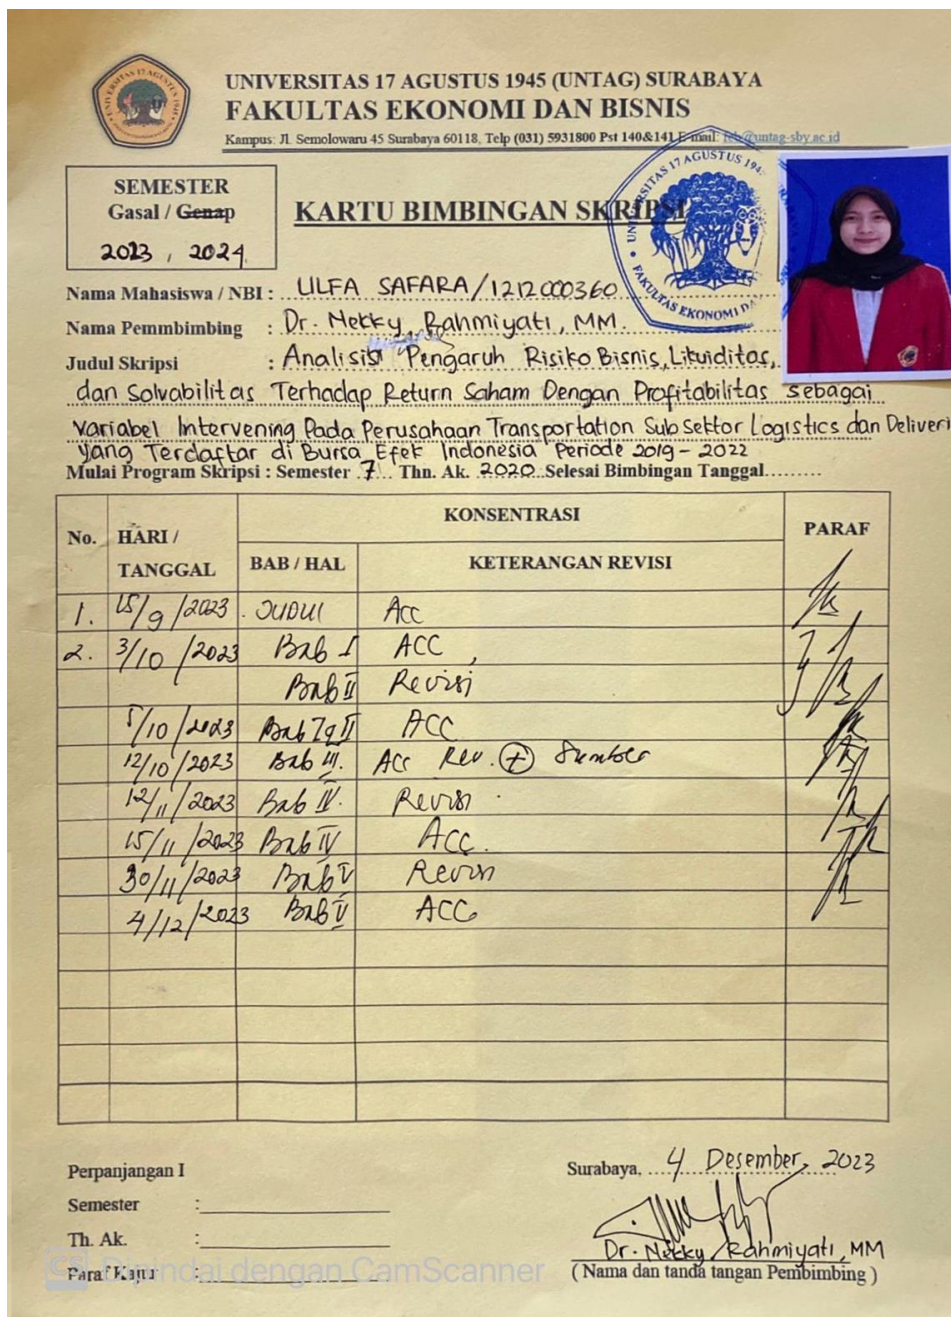 UNIVERSITAS 17 AGUSTUS 1945 (UNTAG) SURABAYA
FAKULTAS EKONOMI DAN BISNIS
Kampus: Jl. Semolowaru 45 Surabaya 60118, Telp (031) 5931800 Pst 140&141 E-mail: feb@untag-sby.ac.id
SEMESTER
Gasal / Genap
2023 , 2024
KARTU BIMBINGAN SKRIPSI
UNIVERSITAS 17 AGUSTUS 194
FAKULTAS EKONOMI DA
Nama Mahasiswa / NBI : LILFA SAFARA/1212000360
Nama Pemmbimbing : Dr. Nekky Rahmiyati, MM.
Judul Skripsi : Analisis Pengaruh Risiko Bisnis, Likuiditas,
dan Solvabilitas Terhadap Return Saham Dengan Profitabilitas sebagai
Variabel Intervening Pada Perusahaan Transportation Sub Sektor Logistics dan Deliveri
yang Terdaftar di Bursa Efek Indonesia Periode 2019 - 2022
Mulai Program Skripsi : Semester 7 Thn. Ak. 2020 Selesai Bimbingan Tanggal
No. HARI / TANGGAL KONSENTRASI PARAF
BAB / HAL KETERANGAN REVISI
1. 15/9/2023 JUDUL Acc
2. 3/10/2023 Bab I ACC
Bab II Revisi
5/10/2023 Bab I II ACC
12/10/2023 Bab III. Acc Rev. + Sumber
12/11/2023 Bab IV. Revisi
15/11/2023 Bab IV Acc.
30/11/2023 Bab V Revisi
4/12/2023 Bab V ACC
Perpanjangan I
Semester :
Th. Ak. :
Paraf Kajur :
Surabaya, 4 Desember, 2023
Dr. Nekky Rahmiyati, MM
( Nama dan tanda tangan Pembimbing )
CS Dipindai dengan CamScanner